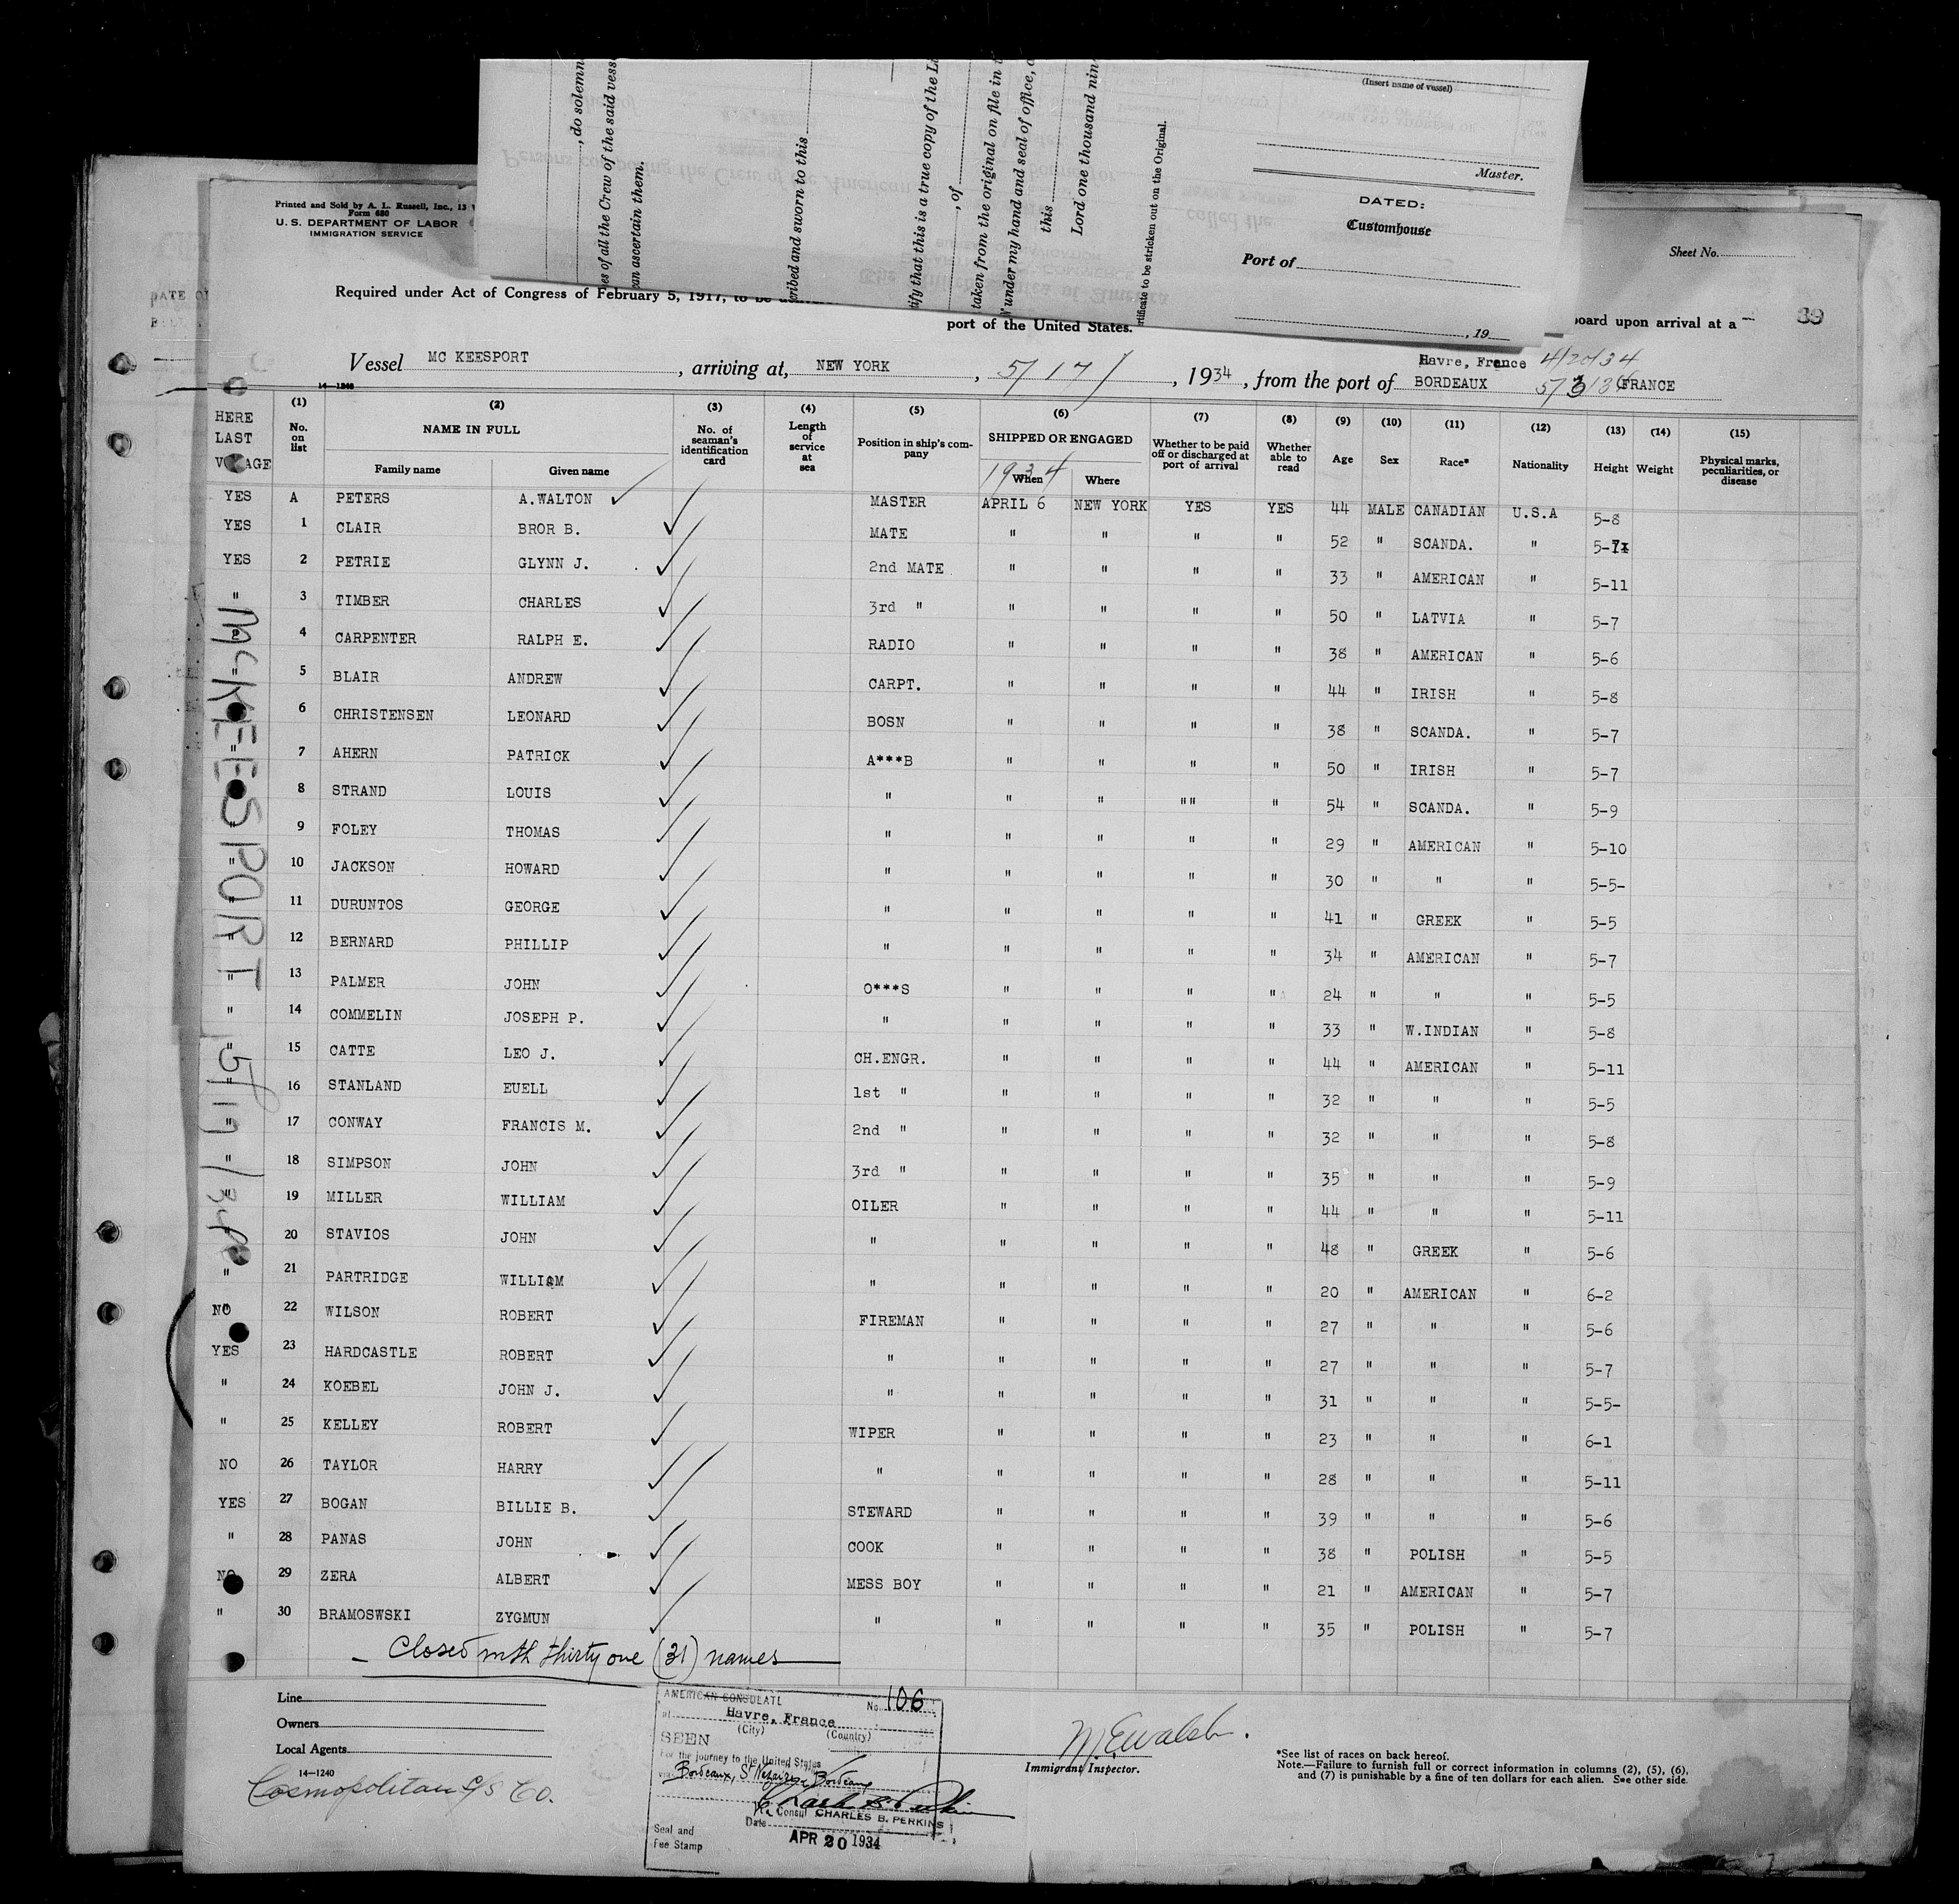 Printed and Sold by A. L. Russell, Inc., 15
Form 680
U. S. DEPARTMENT OF LABOR
IMMIGRATION SERVICE
, do solemn
es of all the Crew of the said vess
an ascertain them.
ribed and sworn to this
ify that this is a true copy of the Li
, of
taken from the original on file in t
under my hand and seal of office,
this
Lord one thousand nin
rtificate to be stricken out on the Original.
(Insert name of vessel)
Master.
DATED:
Customhouse
Port of
, 19
Sheet No.
Required under Act of Congress of February 5, 1917, to be
board upon arrival at a
port of the United States.
89
Vessel MC KEESPORT, arriving at, NEW YORK, 5/17/, 1934, from the port of Havre, France 4/20/34
BORDEAUX 5/3/34 FRANCE
14-1240
HERE LAST VOYAGE
(1) No. on list
(2) NAME IN FULL Family name Given name
(3) No. of seaman's identification card
(4) Length of service at sea
(5) Position in ship's company
(6) SHIPPED OR ENGAGED 1934 When Where
(7) Whether to be paid off or discharged at port of arrival
(8) Whether able to read
(9) Age
(10) Sex
(11) Race*
(12) Nationality
(13) Height
(14) Weight
(15) Physical marks, peculiarities, or disease
YES A PETERS A.WALTON MASTER APRIL 6 NEW YORK YES YES 44 MALE CANADIAN U.S.A 5-8
YES 1 CLAIR BROR B. MATE " " " " 52 " SCANDA. " 5-7
YES 2 PETRIE GLYNN J. 2nd MATE " " " " 33 " AMERICAN " 5-11
" 3 TIMBER CHARLES 3rd " " " " " 50 " LATVIA " 5-7
" 4 CARPENTER RALPH E. RADIO " " " " 38 " AMERICAN " 5-6
" 5 BLAIR ANDREW CARPT. " " " " 44 " IRISH " 5-8
" 6 CHRISTENSEN LEONARD BOSN " " " " 38 " SCANDA. " 5-7
" 7 AHERN PATRICK A***B " " " " 50 " IRISH " 5-7
" 8 STRAND LOUIS " " " "" " 54 " SCANDA. " 5-9
" 9 FOLEY THOMAS " " " " " 29 " AMERICAN " 5-10
" 10 JACKSON HOWARD " " " " " 30 " " " 5-5-
" 11 DURUNTOS GEORGE " " " " " 41 " GREEK " 5-5
" 12 BERNARD PHILLIP " " " " " 34 " AMERICAN " 5-7
" 13 PALMER JOHN O***S " " " " 24 " " " 5-5
" 14 COMMELIN JOSEPH P. " " " " " 33 " W.INDIAN " 5-8
" 15 CATTE LEO J. CH.ENGR. " " " " 44 " AMERICAN " 5-11
" 16 STANLAND EUELL 1st " " " " " 32 " " " 5-5
" 17 CONWAY FRANCIS M. 2nd " " " " " 32 " " " 5-8
" 18 SIMPSON JOHN 3rd " " " " " 35 " " " 5-9
" 19 MILLER WILLIAM OILER " " " " 44 " " " 5-11
" 20 STAVIOS JOHN " " " " " 48 " GREEK " 5-6
" 21 PARTRIDGE WILLIAM " " " " " 20 " AMERICAN " 6-2
NO 22 WILSON ROBERT FIREMAN " " " " 27 " " " 5-6
YES 23 HARDCASTLE ROBERT " " " " " 27 " " " 5-7
" 24 KOEBEL JOHN J. " " " " " 31 " " " 5-5-
" 25 KELLEY ROBERT WIPER " " " " 23 " " " 6-1
NO 26 TAYLOR HARRY " " " " " 28 " " " 5-11
YES 27 BOGAN BILLIE B. STEWARD " " " " 39 " " " 5-6
" 28 PANAS JOHN COOK " " " " 38 " POLISH " 5-5
NO 29 ZERA ALBERT MESS BOY " " " " 21 " AMERICAN " 5-7
" 30 BRAMOSWSKI ZYGMUN " " " " " 35 " POLISH " 5-7
McKEESPORT 5/17/34
Closed with thirty one (31) names
Line
Owners
Local Agents
14-1240
Cosmopolitan S/S Co.
AMERICAN CONSULATE No. 106
at Havre, France
(City) (Country)
SEEN
For the journey to the United States
via Bordeaux, St Nazaire, Bordeaux
Charles B. Perkins
Vice Consul CHARLES B. PERKINS
Date APR 20 1934
Seal and
Fee Stamp
M.E. Walsh.
Immigrant Inspector.
*See list of races on back hereof.
Note.—Failure to furnish full or correct information in columns (2), (5), (6),
and (7) is punishable by a fine of ten dollars for each alien. See other side.